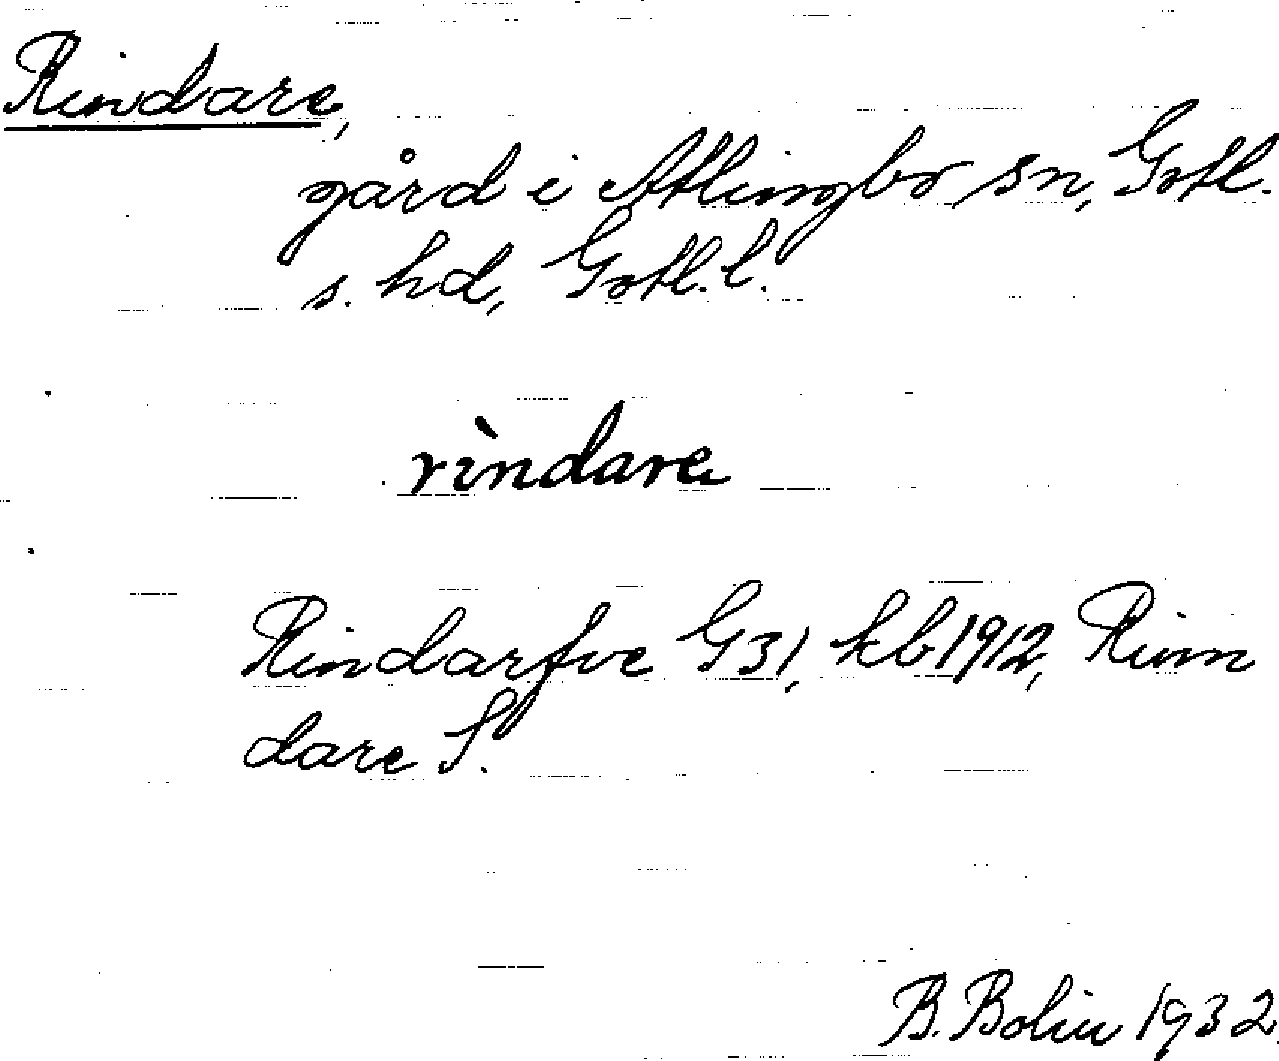 Rindare,
gård i Atlingbo sn, Gotl.
s. hd, Gotl. l.
rìndare
Rindarfve G31, kb1912, Rinn
dare S.
B. Bolin 1932.